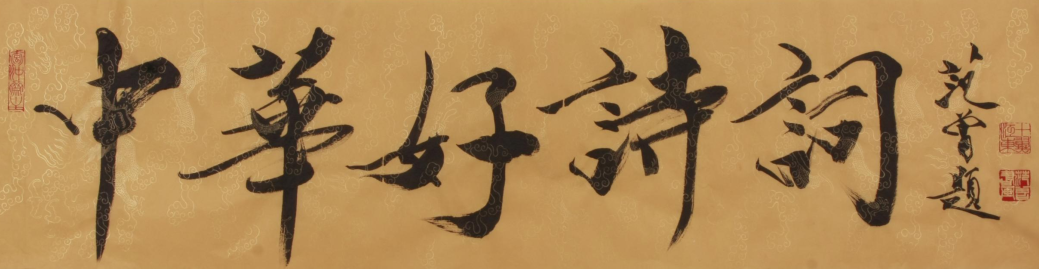 中華好詩詞
范曾題